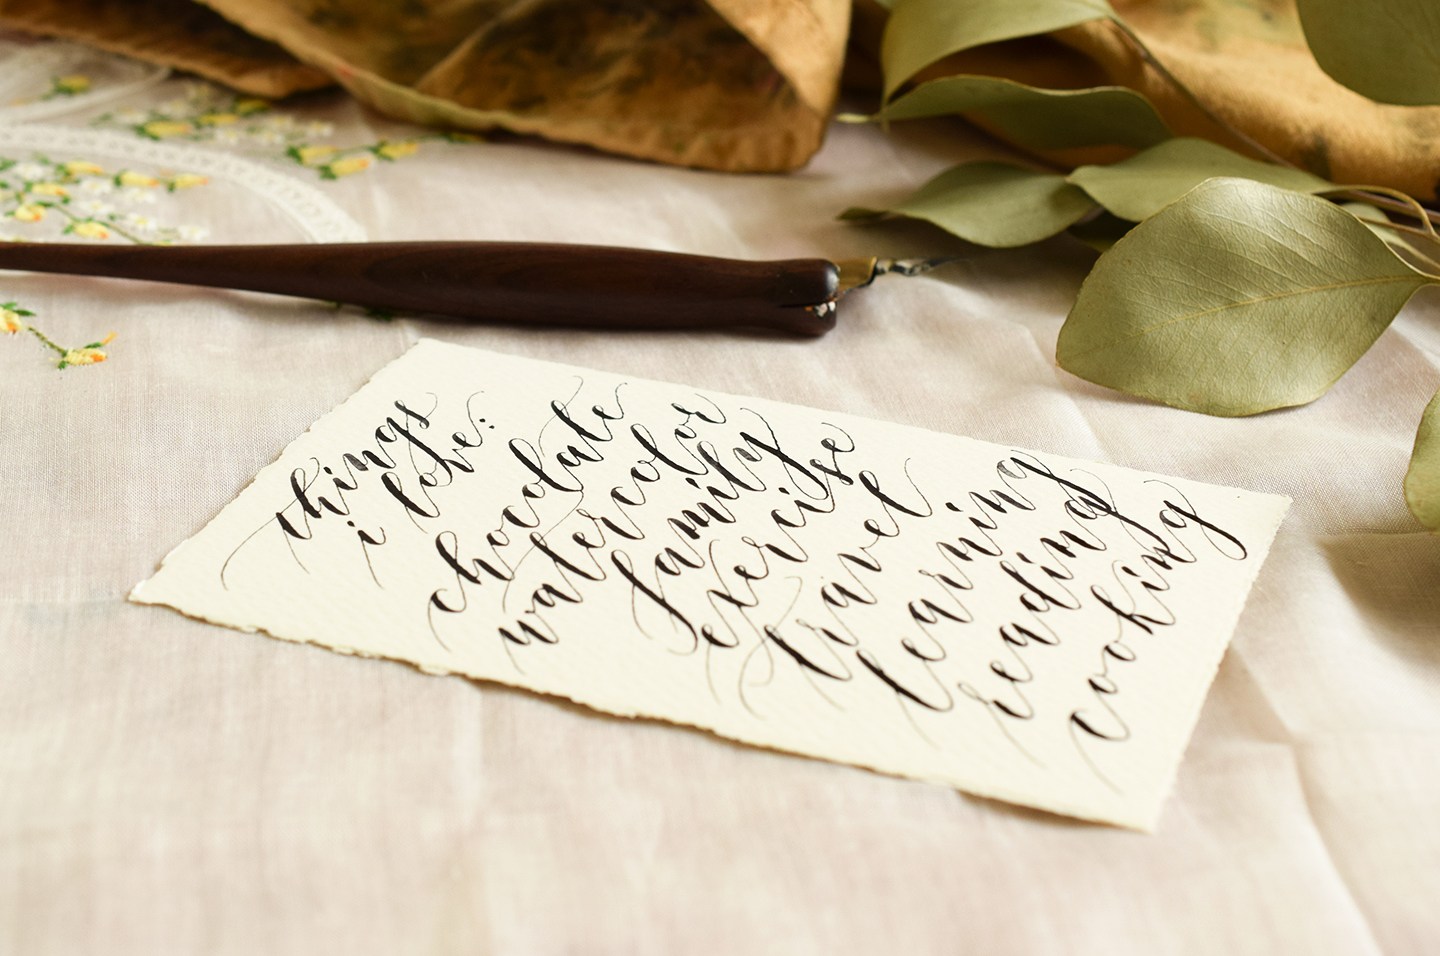 things
i love:
chocolate
watercolor
family
exercise
travel
learning
reading
cooking